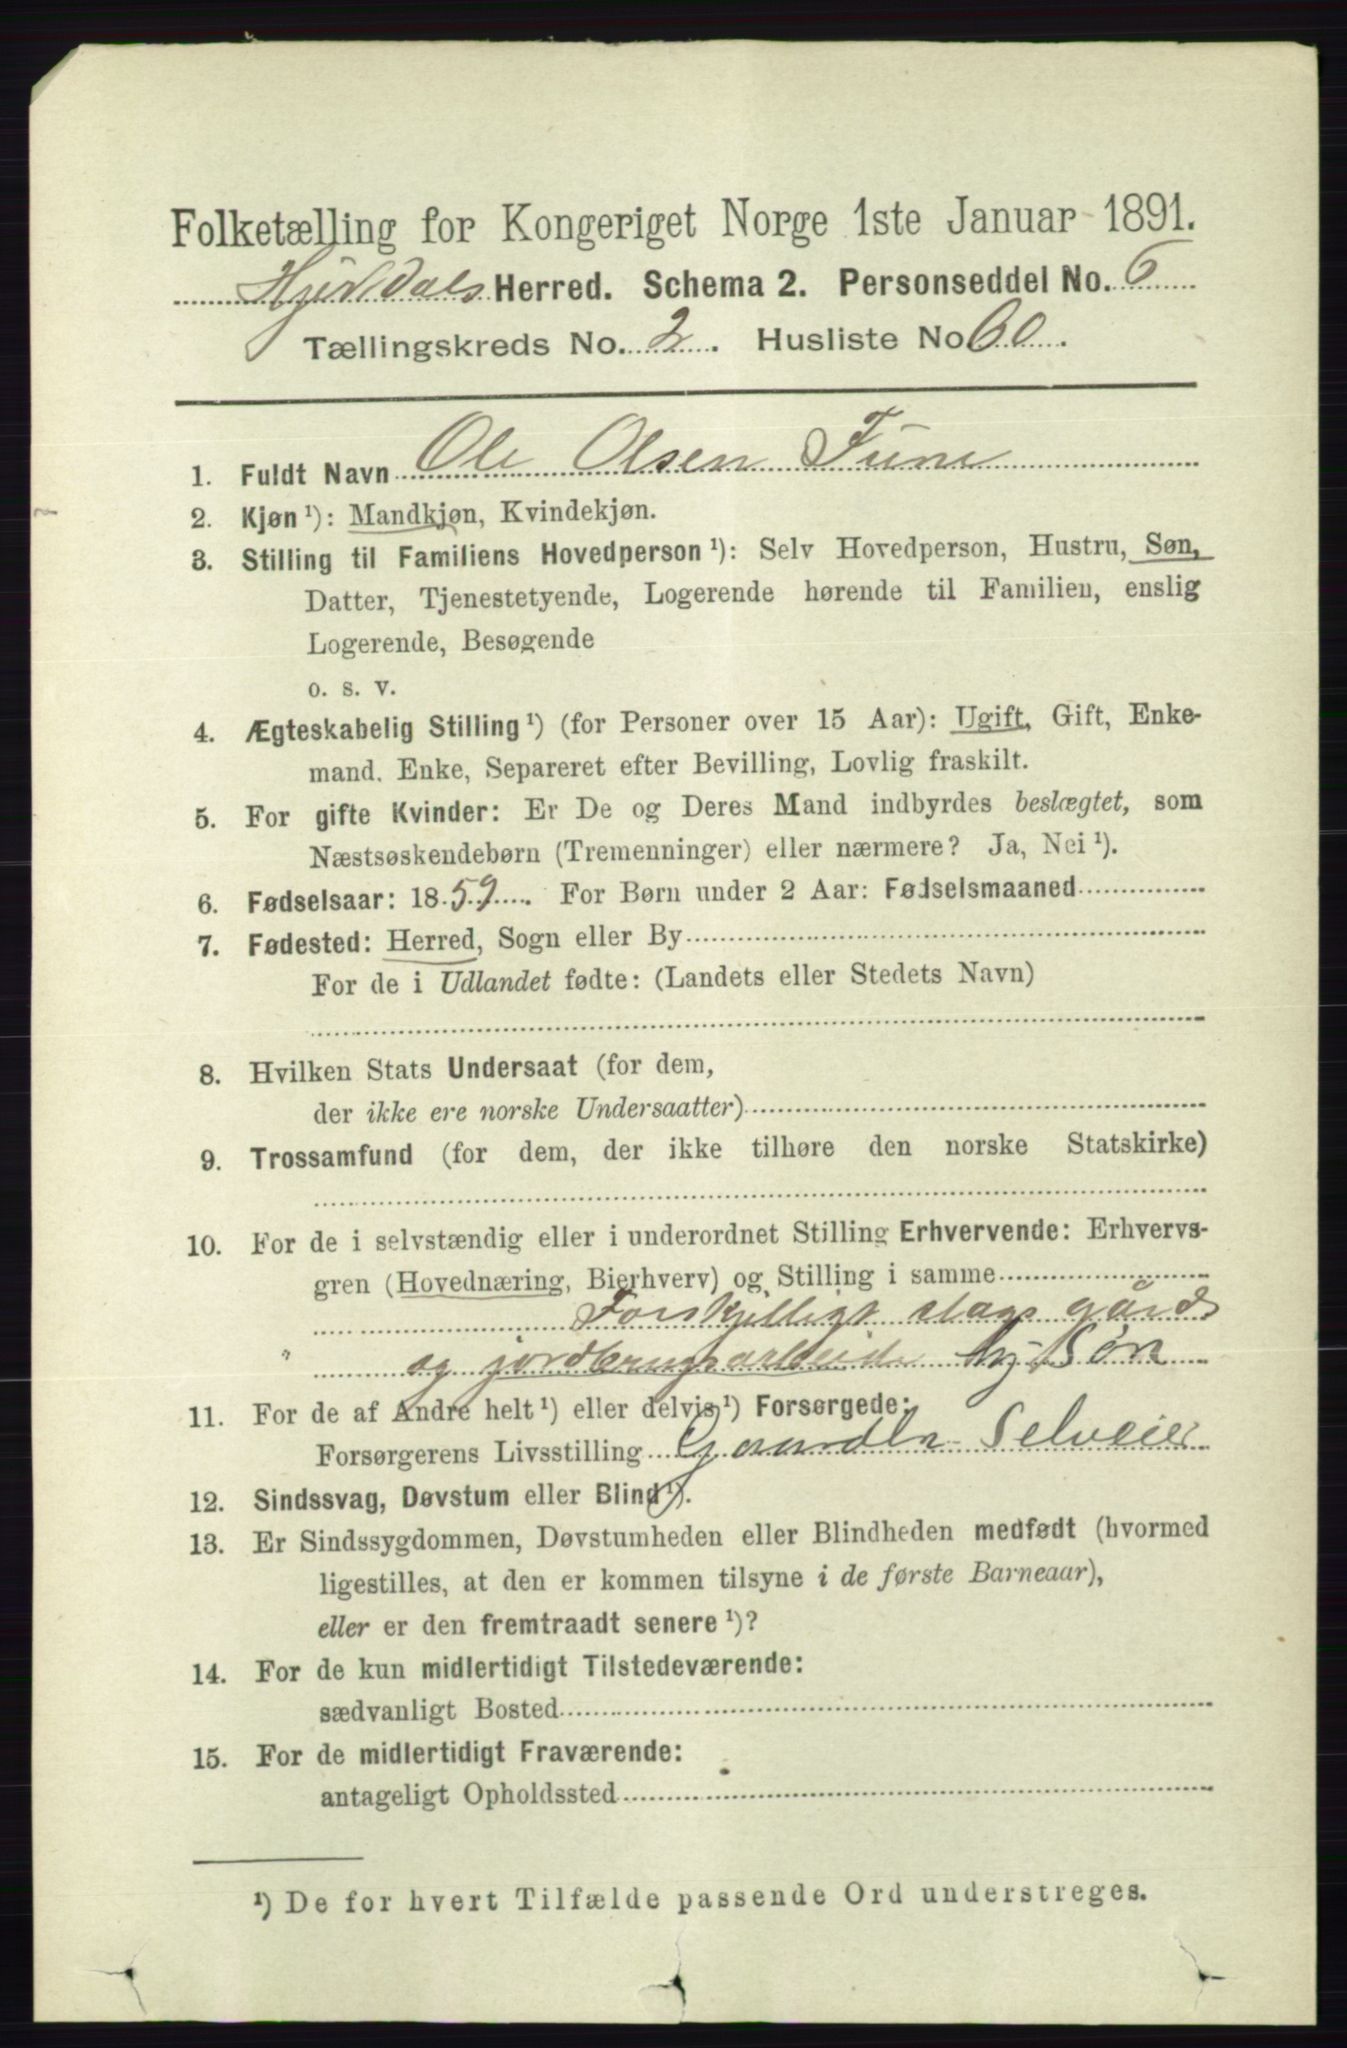 Folketælling for Kongeriget Norge 1ste Januar 1891.
Hjerdals Herred. Schema 2. Personseddel No. 6
Tællingskreds No. 2. Husliste No. 60.
1. Fuldt Navn Ole Olsen Fune
2. Kjøn ¹): Mandkjøn, Kvindekjøn.
3. Stilling til Familiens Hovedperson ¹): Selv Hovedperson, Hustru, Søn,
Datter, Tjenestetyende, Logerende hørende til Familien, enslig
Logerende, Besøgende
o. s. v.
4. Ægteskabelig Stilling ¹) (for Personer over 15 Aar): Ugift, Gift, Enke-
mand. Enke, Separeret efter Bevilling, Lovlig fraskilt.
5. For gifte Kvinder: Er De og Deres Mand indbyrdes beslægtet, som
Næstsøskendebørn (Tremenninger) eller nærmere? Ja, Nei ¹).
6. Fødselsaar: 1859. For Børn under 2 Aar: Fødselsmaaned
7. Fødested: Herred, Sogn eller By
For de i Udlandet fødte: (Landets eller Stedets Navn)
8. Hvilken Stats Undersaat (for dem,
der ikke ere norske Undersaatter)
9. Trossamfund (for dem, der ikke tilhøre den norske Statskirke)
10. For de i selvstændig eller i underordnet Stilling Erhvervende: Erhvervs-
gren (Hovednæring, Bierhverv) og Stilling i samme
Forskjelligt slags gårds
og jordbrugsarbeide hj. Søn
11. For de af Andre helt ¹) eller delvis ¹) Forsørgede:
Forsørgerens Livsstilling Selveier
12. Sindssvag, Døvstum eller Blind ¹).
13. Er Sindssygdommen, Døvstumheden eller Blindheden medfødt (hvormed
ligestilles, at den er kommen tilsyne i de første Barneaar),
eller er den fremtraadt senere ¹)?
14. For de kun midlertidigt Tilstedeværende:
sædvanligt Bosted
15. For de midlertidigt Fraværende:
antageligt Opholdssted
¹) De for hvert Tilfælde passende Ord understreges.